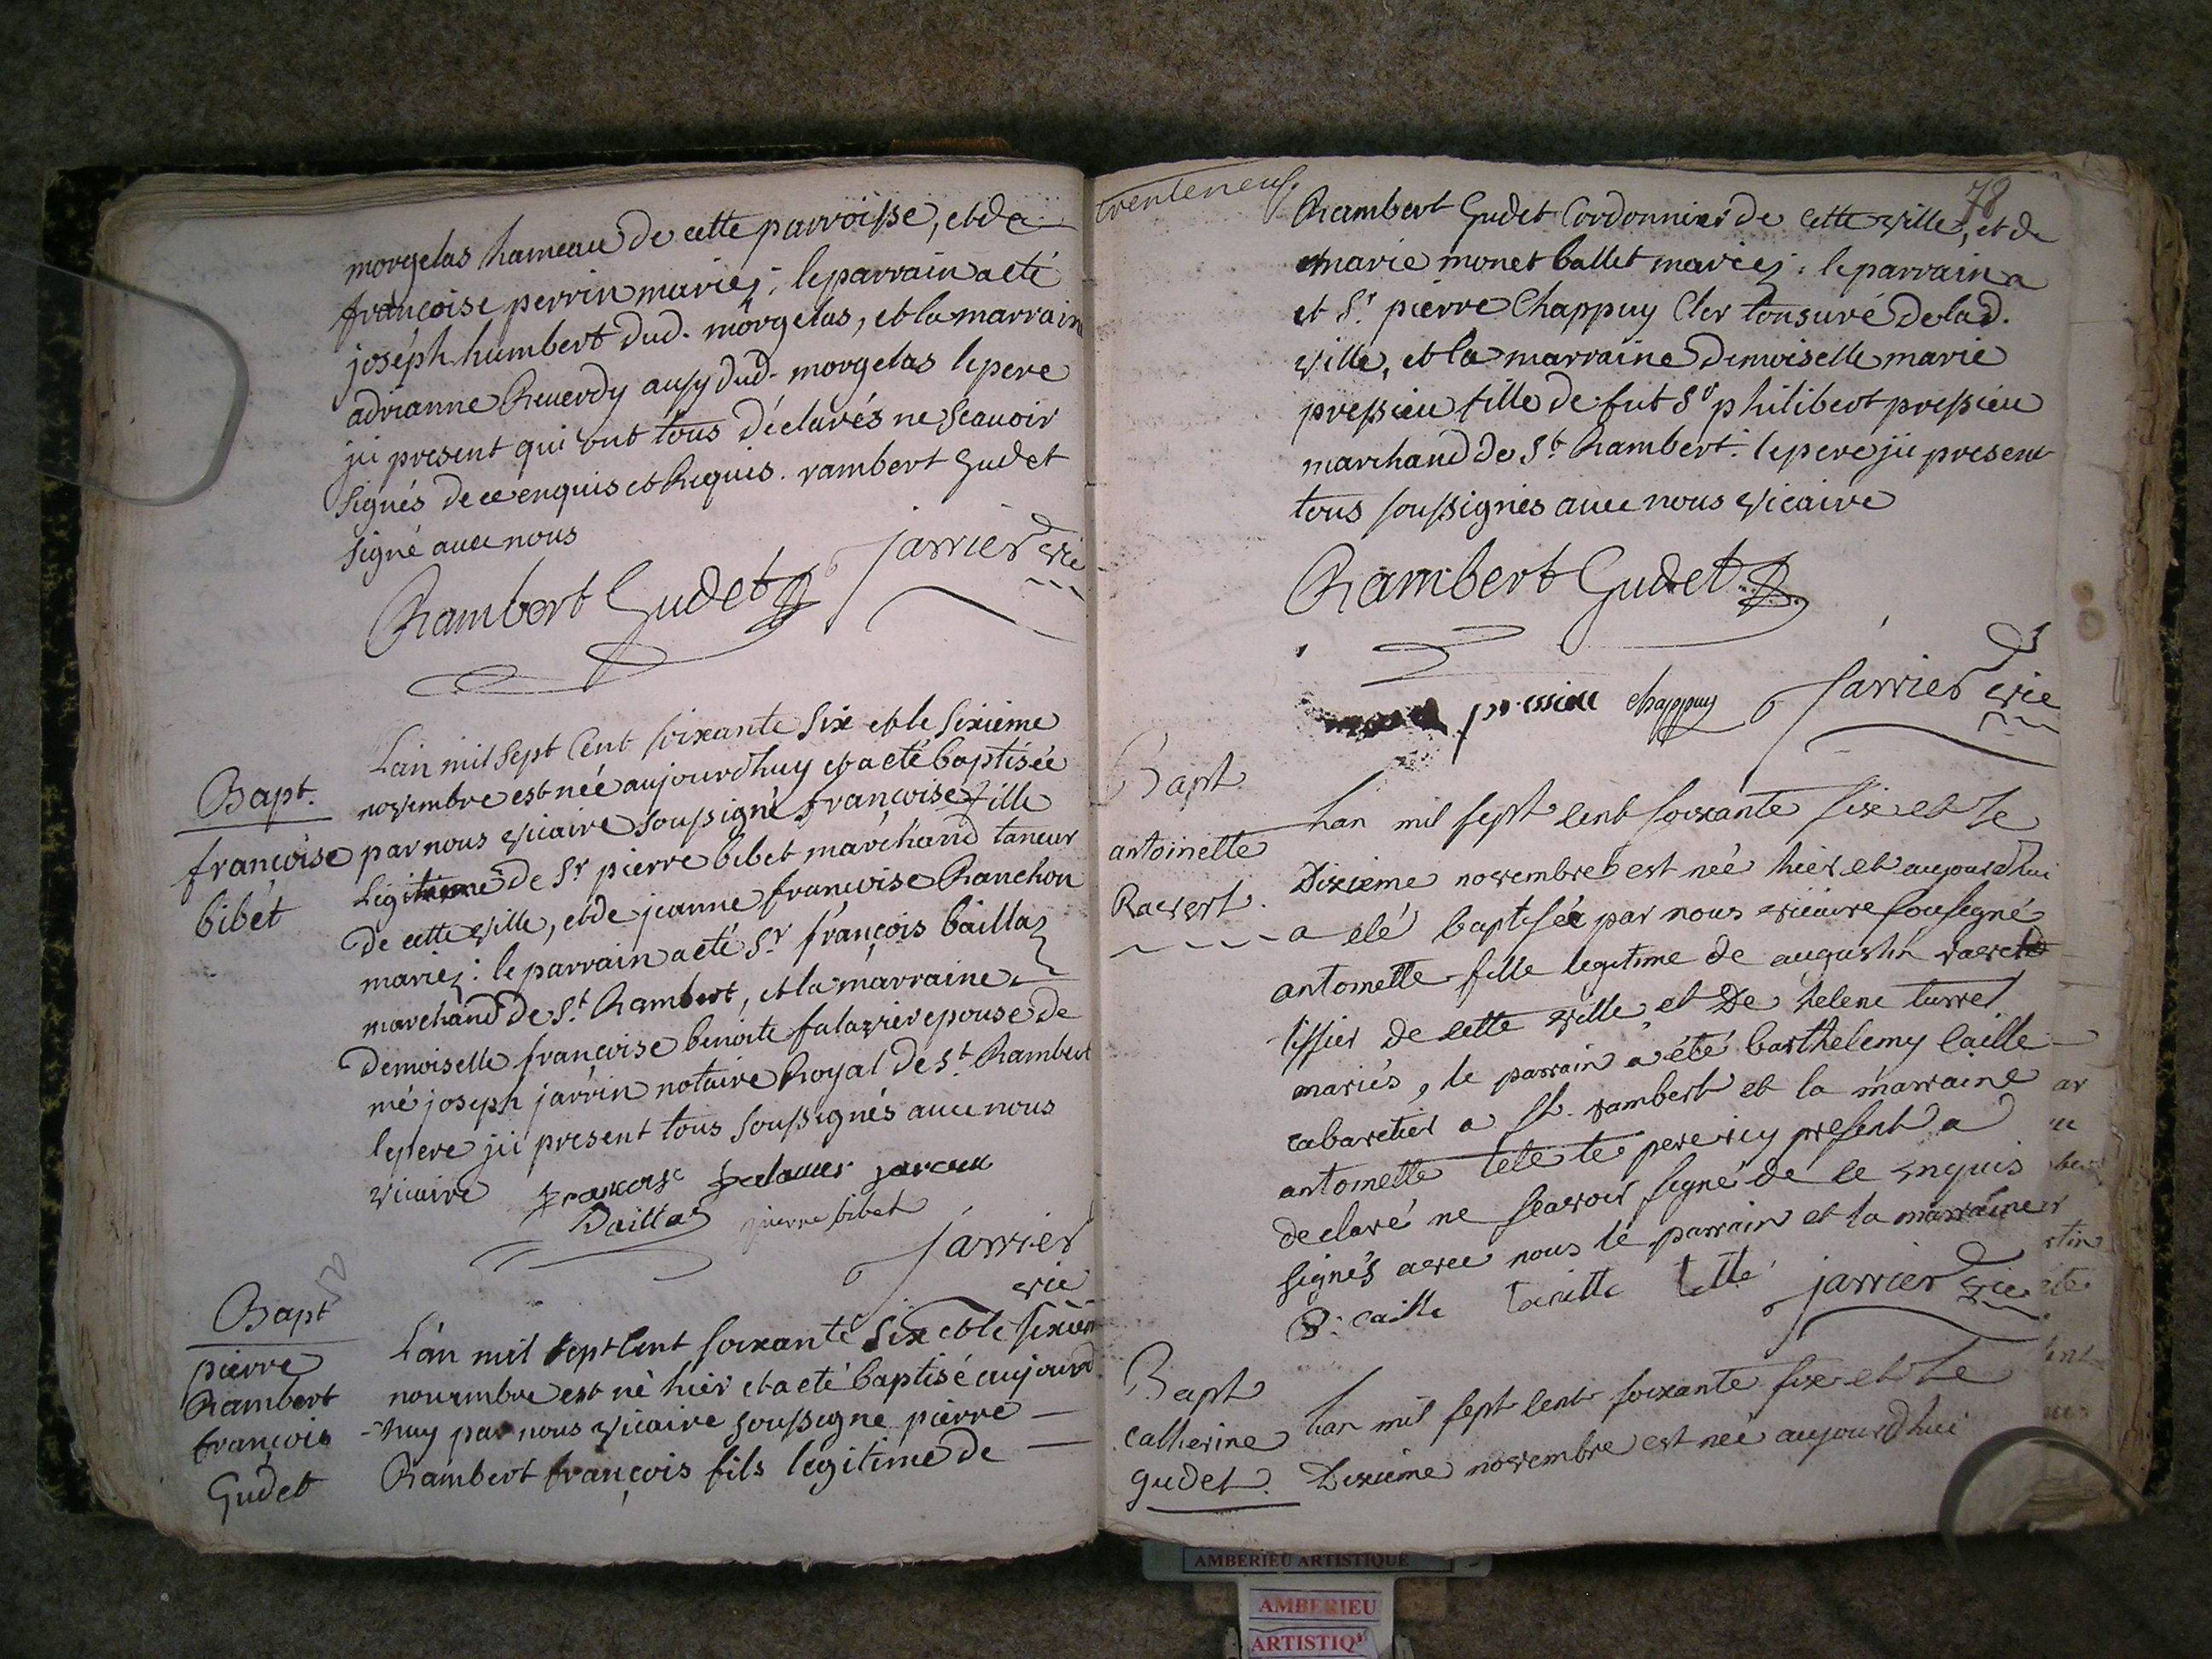 morgelas hameau de cette parroisse, et de
françoise perrin mariez : le parrain a eté
joséph humbert dud. morgelas, et la marrain
adrianne Reuerdy ausy dud. morgelas le pere
jci present qui ont tous déclarés ne Scauoir
signés de ce enquis et Requis. rambert Gudet
signé auec nous
Rambert Gudet
jarrier vic
Bapt.
françoise
bibet
L'an mil sept Cent soixante six et le sixieme
novembre est née aujourdhuy et a eté baptisée
par nous vicaire soussigné françoise fille
Legitime de Sr pierre bibet marchand taneur
de cette ville, et de jeanne françoise Ranchon
mariez : le parrain a eté Sr. françois baillaz
marchand de St. Rambert, et la marraine
Demoiselle françoise benoite falavier epouse de
mé joseph jarrin notaire Royal de St. Rambert
le pere jci present tous soussignés auec nous
vicaire
françoise
Baillaz pierre bibet
jarrier
vic
Bapt
pierre
Rambert
françois
Gudet
L'an mil sept Cent soixante six et le sixiem
nouembre est né hier et a eté baptisé aujourd
-huy par nous vicaire soussigne pierre
Rambert françois fils legitime de
trenteneuf.
78
Rambert Gudet Cordonnier de Cette ville, et de
marie monet ballet mariez : le parrain a
et Sr. pierre Chappuy Cler tonsuré de lad.
ville, et la marraine Demoiselle marie
pressieu fille de fut Sr philibert pressieu
marchand de St. Rambert : le pere jci present
tous soussignés auec nous vicaire
Rambert Gudet
pressieu chappuy jarrier vic
Bapt
antoinette
Ravert.
Lan mil sept cent soixante six et le
Dixieme novembre est née hier et aujourdhui
a eté baptisée par nous vicaire sousigné
antoinette fille legitime de augustin ravert
tissier de cette ville et De helene turrel
mariés, le parrain a été barthelemy caille
cabaretier a St. rambert et la marraine
antoinette tete le pere icy present a
declaré ne scavoir signé de ce enquis
signés avec nous le parrain et la marraine
B. caille toinette tette jarrier vic
Bapt
Catherine
gudet.
Lan mil sept cent soixante six et le
Dixieme novembre est née aujourdhui
AMBERIEU ARTISTIQUE
AMBERIEU
ARTISTIQ